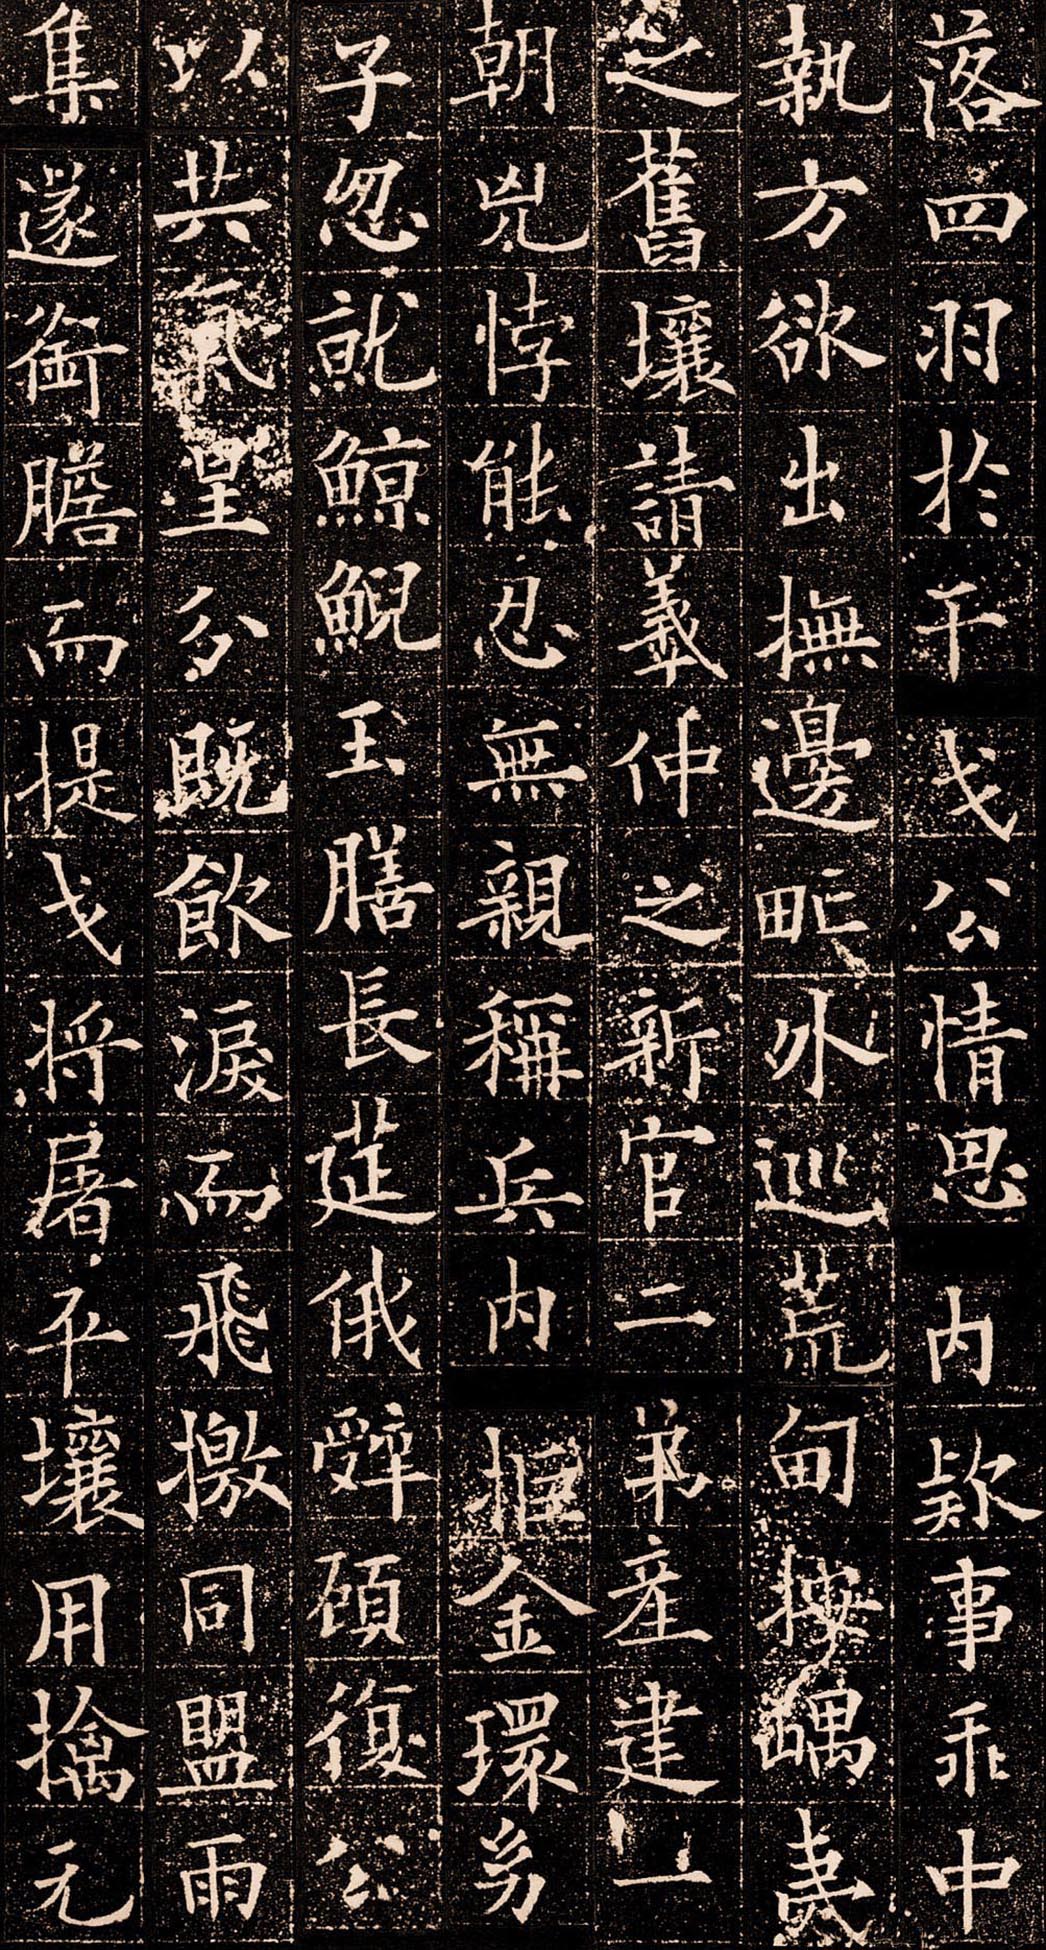 落四羽於干戈公情思内款事乖中
執方欲出撫邊甿外巡荒甸按嵎夷
之舊壤請羲仲之新官二弟産建一
朝兇悖能忍無親稱兵内拒金環易
子忽就鯨鯢玉膳長筵俄辭顧復公
以共氣星分既飲淚而飛檄同盟雨
集遂銜膽而提戈将屠平壤用擒元